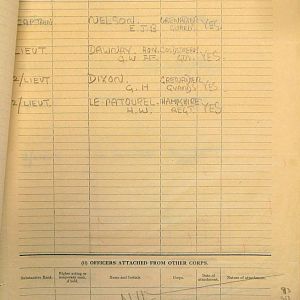 CAPTAIN NELSON. GRENADIER YES
E.J.B GUARD.
LIEUT DAWNAY. HON. COLDSTREAM
G.W GU. YES
2/LIEUT DIXON. GRENADIER
G. H GUARDS YES
2/LIEUT. LE-PATOUREL. HAMPSHIRE YES
H.W. REGT.
(i) OFFICERS ATTACHED FROM OTHER CORPS.
Substantive Rank. Higher acting or temporary rank, if held. Name and Initials. Corps. Date of attachment. Nature of attachment.
NIL